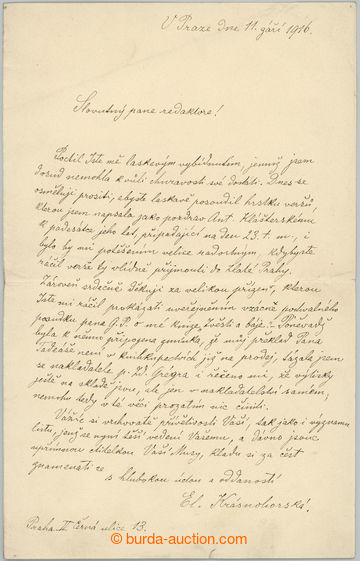 V Praze dne 11. září 1916.
Slovutný pane redaktore!
Poctil jste mě laskavým vybídnutím, jemuž jsem
dosud nemohla k vůli churavosti své dostáti. Dnes se
osměluji prositi, abyste laskavě posoudil hrstku veršů,
kterou jsem napsala jako pozdrav Ant. Klášterskému
k padesátce jeho let, připadající na den 23. t. m., i
bylo by mi potěšením velice radostným, kdybyste
ráčil verše ty vlídně přijmouti do Zlaté Prahy.
Zároveň srdečně děkuji za velikou přízeň, kterou
jste mi ráčil prokázati uveřejněním vzácně pochvalného
posudku pana G. P. o mé knize „Zvěsti a báje“. Poněvadž
byla k němu připojena poznámka, že můj překlad Pana
Tadeáše není v knihkupectvích již na prodej, tázala jsem
se nakladatele p. Ed. Grégra i řečeno mi, že výtisky
ještě na skladě jsou, ale jen v nakladatelství samém,
nemohu tedy v té věci prozatím nic činiti.
Vážíc si vrchovatě přívětivosti Vaší, tak jako i významu
listu, jenž se nyní těší vedení Vašemu, a dávno jsouc
upřímnou ctitelkou Vaší Musy, kladu si za čest
znamenati se
s hlubokou úctou a oddaností
El. Krásnohorská.
Praha-II Černá ulice 13.
burda-auction.com